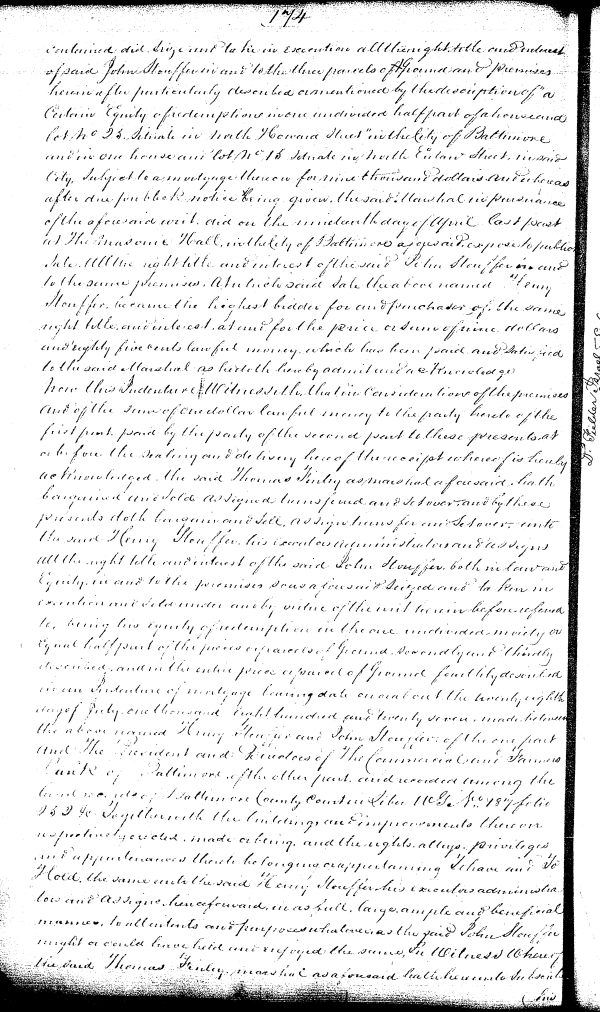 174
contained did seize and taken in execution all the right, title and interest
of said John Stouffer in and to the three parcels of Ground and premises
herein after particularly described as mentioned by the description of "a
Certain Equity of redemption in one undivided half part of a house and
lot No 25. Situate in North Howard Street in the City of Baltimore
and in one house and lot No 15 Situate in North Eutaw Street, in said
City, Subject to a mortgage thereon for nine thousand dollars and whereas
after due publick notice being given, the said Marshal in pursuance
of the aforesaid writ, did on the day of April last past
at The Masonic Hall, in the City of Baltimore aforesaid, expose to public
Sale. All the right title and interest of the said John Stouffer in and
to the same premises. At which said Sale the above named Henry
Stouffer, became the highest bidder for and purchaser of the same
right title, and interest, at and for the price or sum of nine dollars
and eighty five cents lawful money, which has been paid and satisfied
to the said Marshal as he doth hereby admit and acknowledge
Now this Indenture Witnesseth, that in Consideration of the premises
and of the sum of one dollar lawful money to the party hereto of the
first part, paid by the party of the second part to these presents, at
or before the sealing and delivery hereof the receipt whereof is hereby
acknowledged, the said Thomas Finley as marshal aforesaid, hath
bargained and sold assigned transfered and set over, and by these
presents doth bargain and Sell, assign transfer and Set over, unto
the said Henry Stouffer, his executors administrators and assigns
all the right title and interest of the said John Stouffer, both in law and
Equity, in and to the premises so as aforesaid Seized and taken in
execution and sold under and by virtue of the writ herein before referred
to, being his equity of redemption in the one undivided moiety or
Equal half part of the pieces or parcels of Ground Secondly and thirdly
described, and in the entire piece or parcel of Ground fourthly described
in an Indenture of mortgage bearing date on or about the twenty eighth
day of July, one thousand eight hundred and twenty seven, made between
the above named Henry Stouffer and John Stouffer, of the one part
and The President and Directors of The Commercial and Farmers
Bank of Baltimore, of the other part, and recorded among the
land records of Baltimore County Court in Liber W G No 187 folio
252 &c. Together with the buildings and improvements thereon
respectively erected, made or being, and the rights, alleys, privileges
and appurtenances thereto belonging or appertaining To have and To
Hold, the same unto the said Henry Stouffer, his executors administra
tors and assigns, henceforward, in as full, large, ample and beneficial
manner, to all intents and purposes whatever, as the said John Stouffer
might or could have held and enjoyed the same, In Witness Whereof
the said Thomas Finley marshal as aforesaid hath hereunto Subscribed